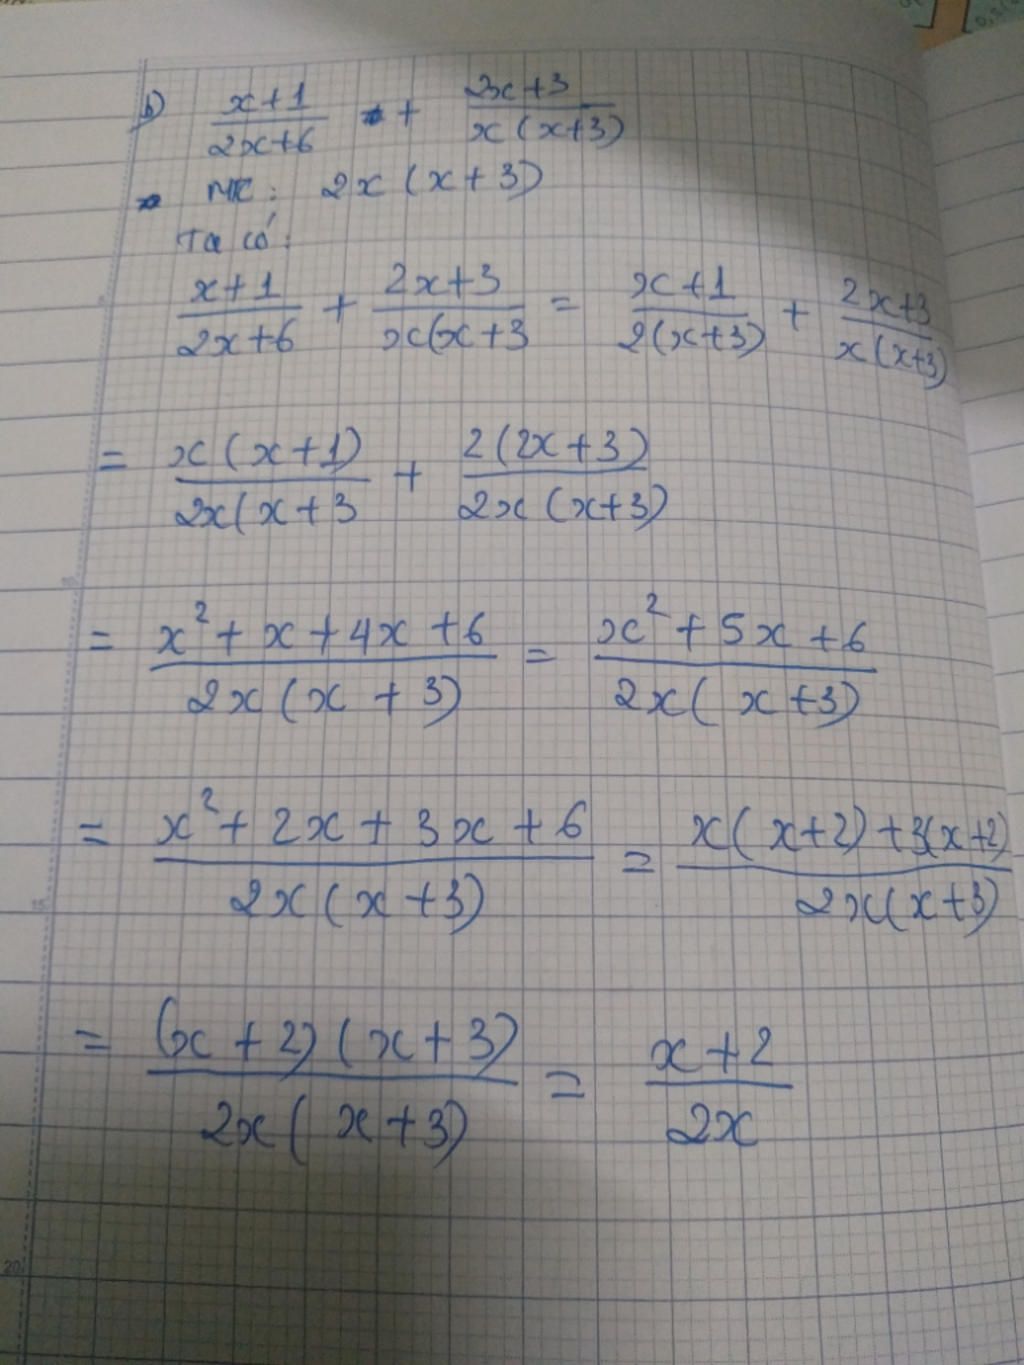 b) (x+1)/(2x+6) + (2x+3)/(x(x+3))
MTC: 2x(x+3)
Ta có:
(x+1)/(2x+6) + (2x+3)/(x(x+3) = (x+1)/(2(x+3)) + (2x+3)/(x(x+3))
= x(x+1)/(2x(x+3) + 2(2x+3)/(2x(x+3))
= (x²+x+4x+6)/(2x(x+3)) = (x²+5x+6)/(2x(x+3))
= (x²+2x+3x+6)/(2x(x+3)) = (x(x+2)+3(x+2))/(2x(x+3))
= (x+2)(x+3)/(2x(x+3)) = (x+2)/(2x)
20